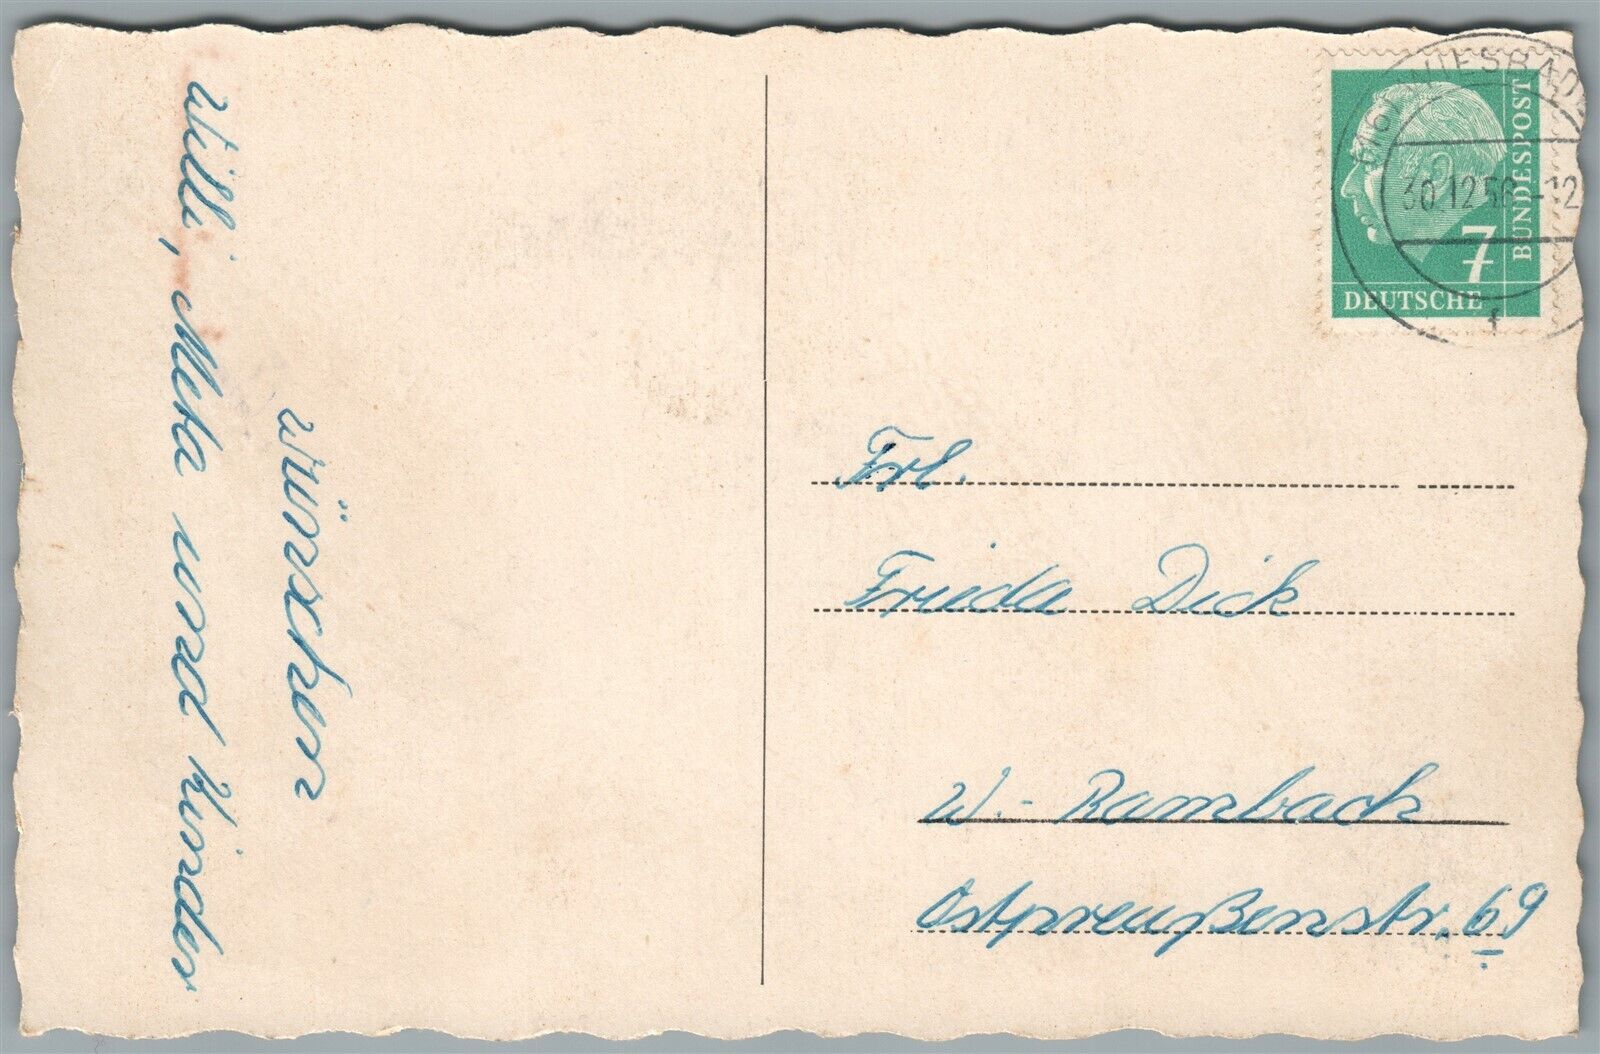 wünschen
Willi, Meta und Kinder
(16) WIESBADEN
30.12.56 -12
f
7
DEUTSCHE
BUNDESPOST
Frl.
Frieda Dick
W.- Rambach
Ostpreußenstr. 69